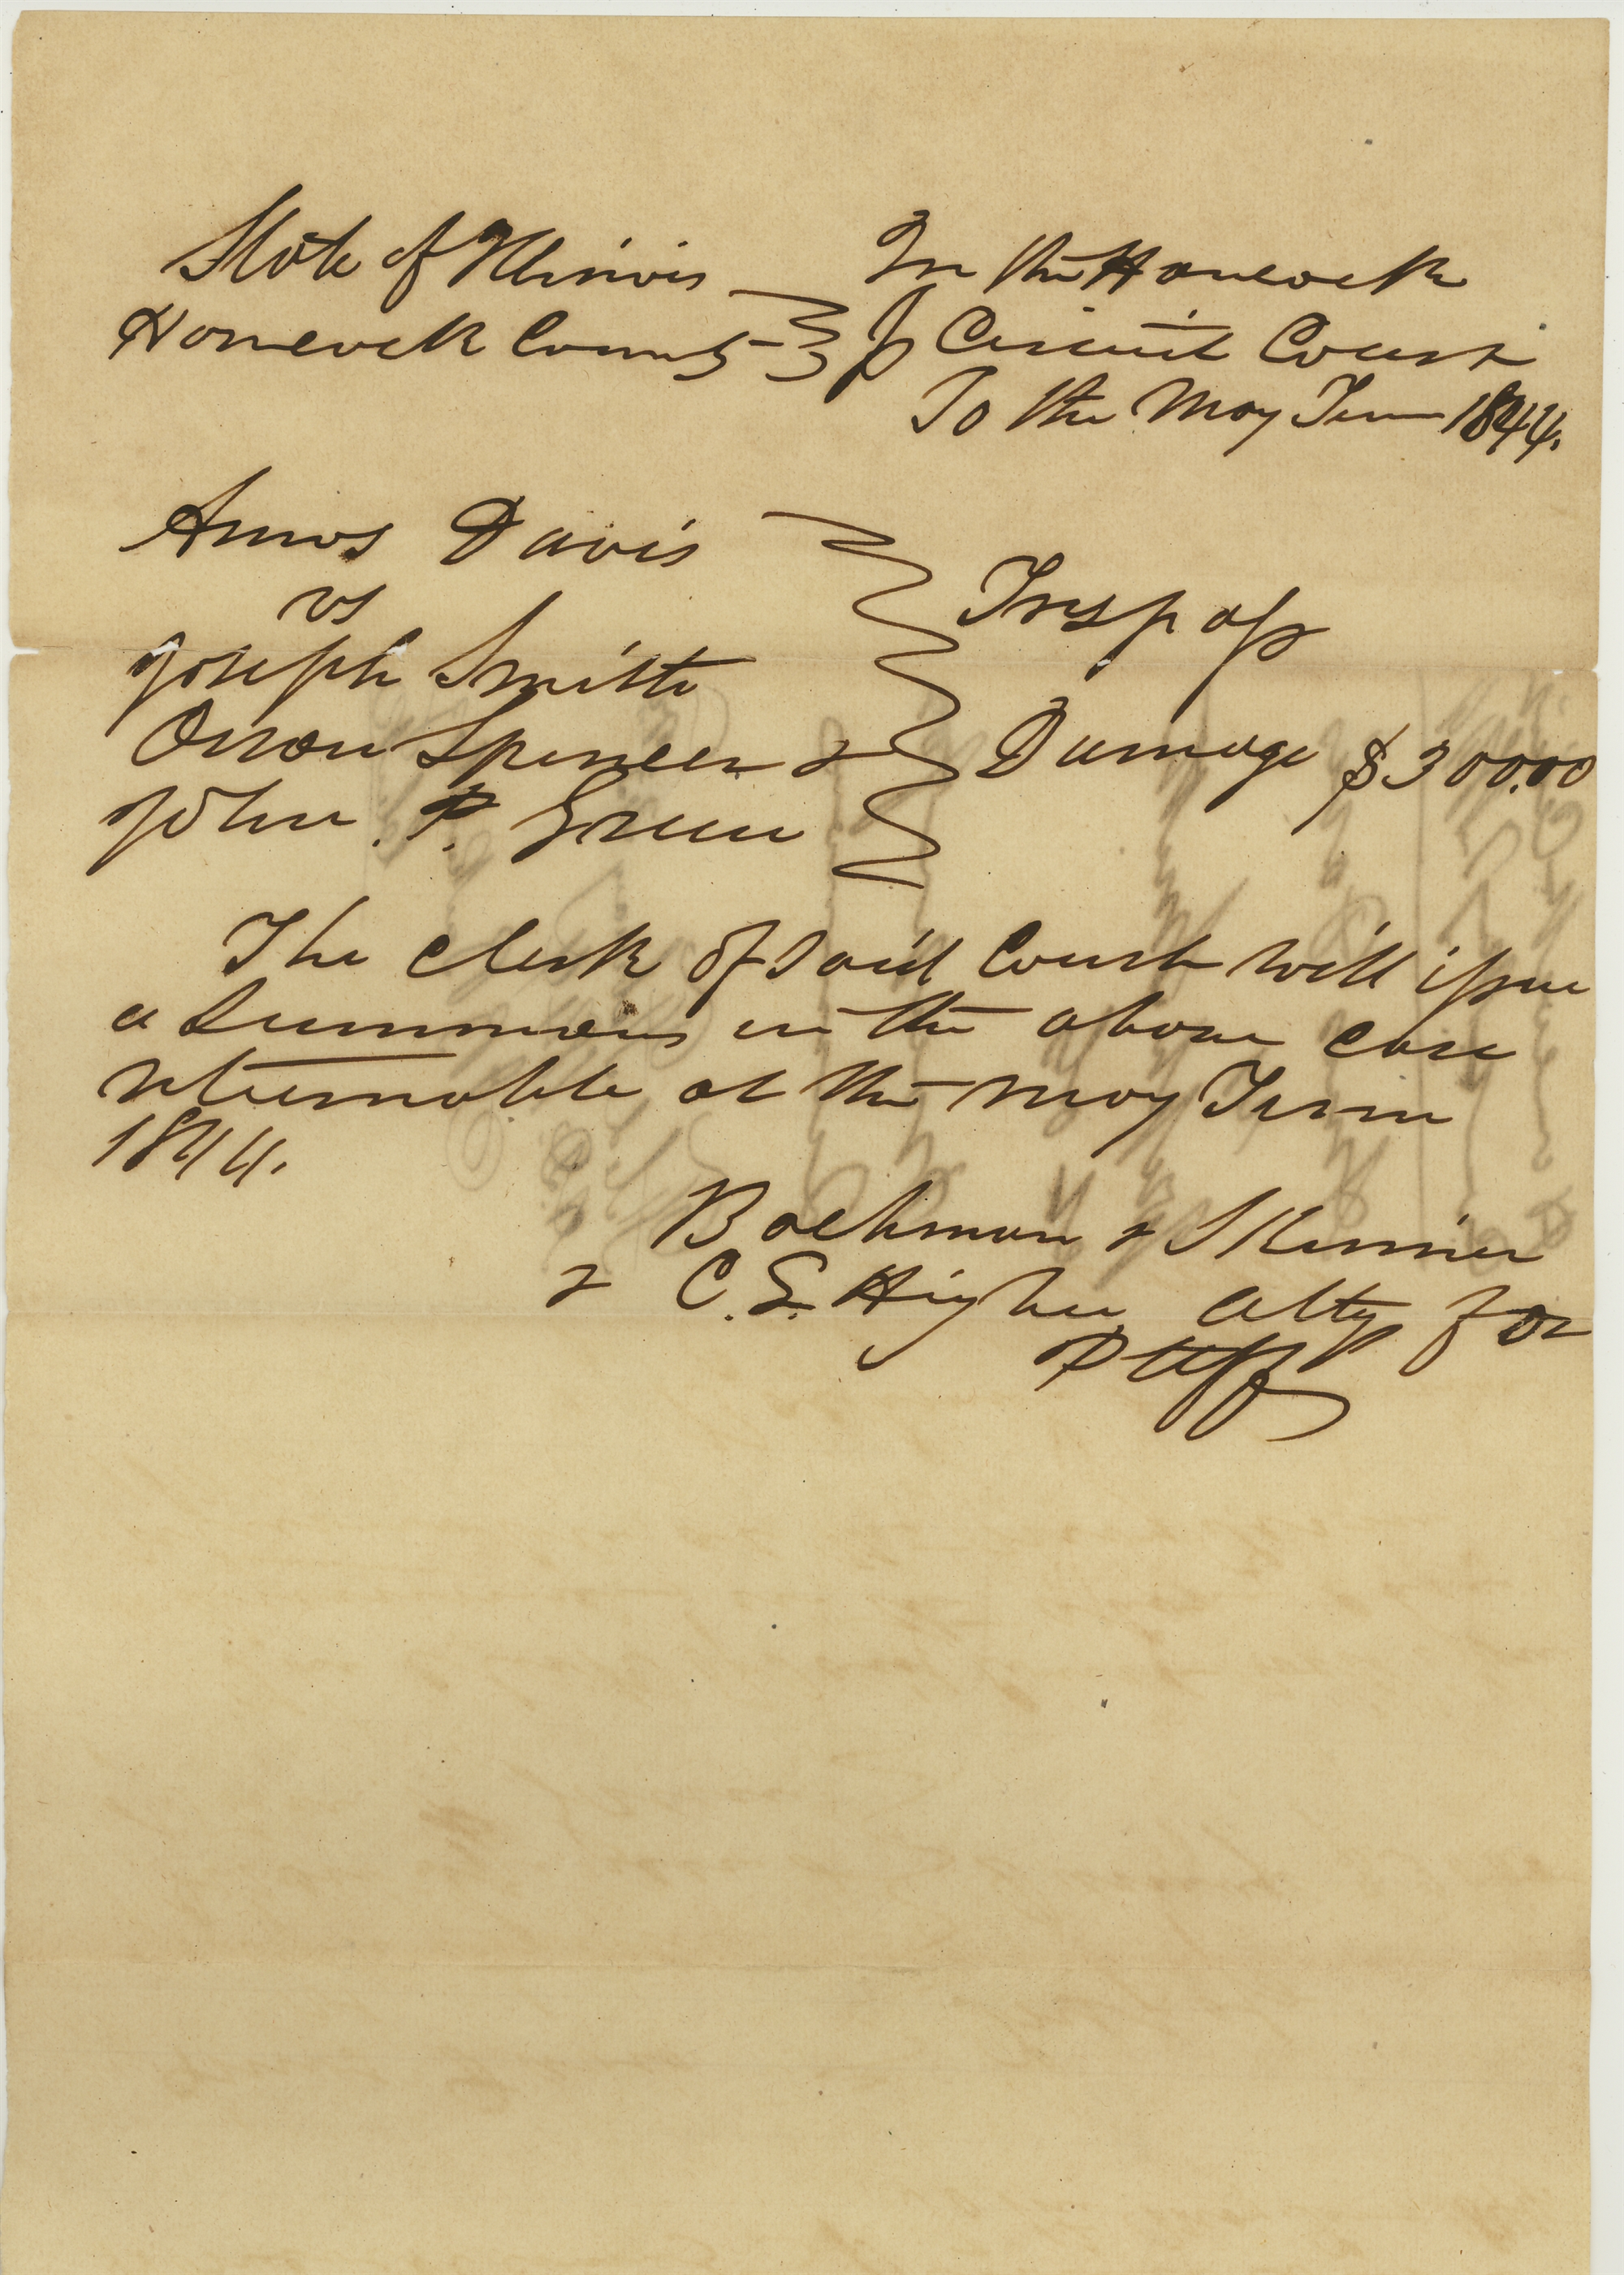 State of Illinois In the Hancock
Hancock County Circuit Court
To the May Term 1844.
Amos Davis
vs
Trespass
Joseph Smith
Orson Spencer & Damage $3000.00
John. P. Green
The clerk of said Court will issue
a summons in the above case
returnable at the May Term
1844.
Backman & Skinner
& C. L. Higbee atty for
Plff